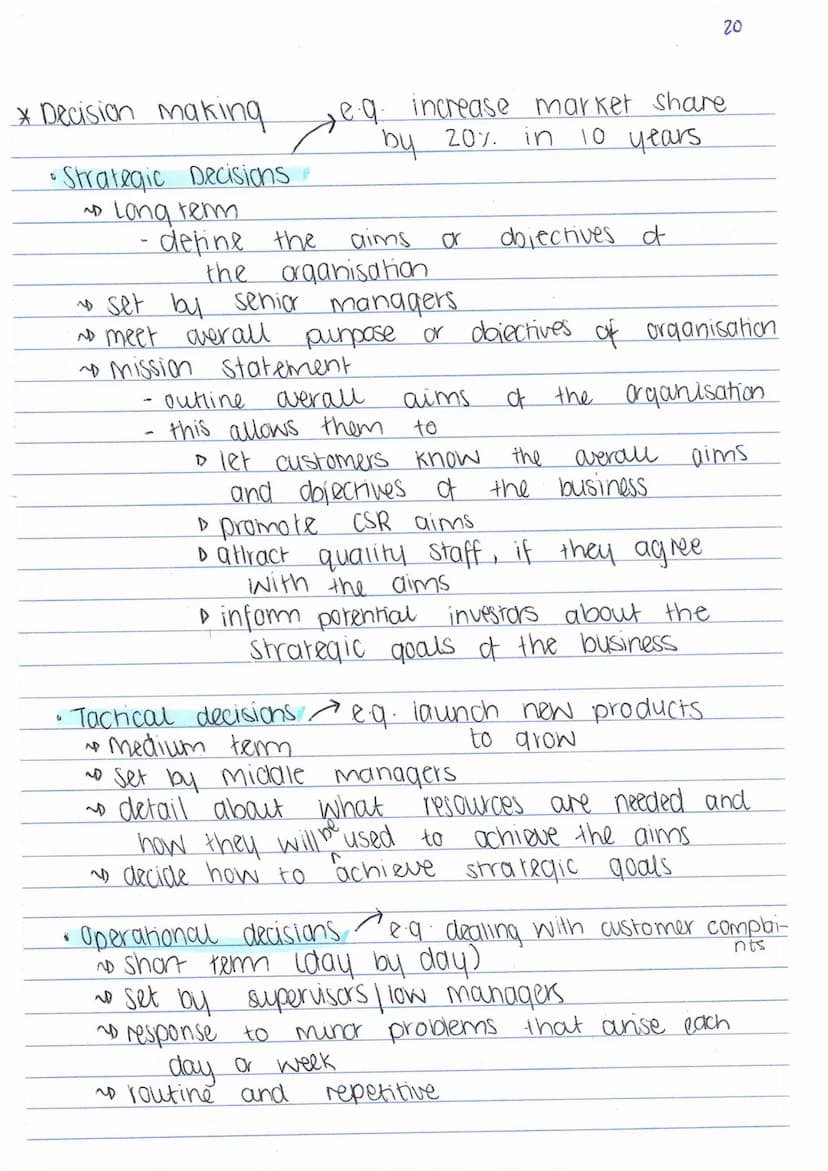 20
* Decision making → e.g. increase market share
by 20% in 10 years
• Strategic Decisions
~> Long term
- define the aims or objectives of
the organisation
~> set by senior managers
~> meet overall purpose or objectives of organisation
~> mission statement
- outline overall aims of the organisation
- this allows them to
▷ let customers know the overall aims
and objectives of the business
▷ promote CSR aims
▷ attract quality staff, if they agree
with the aims
▷ inform potential investors about the
strategic goals of the business
• Tactical decisions → e.g. launch new products
to grow
~> medium term
~> set by middle managers
~> detail about what resources are needed and
how they will be used to achieve the aims
~> decide how to achieve strategic goals
• Operational decisions → e.g. dealing with customer complai-
nts
~> short term (day by day)
~> set by supervisors/low managers
~> response to minor problems that arise each
day or week
~> routine and repetitive